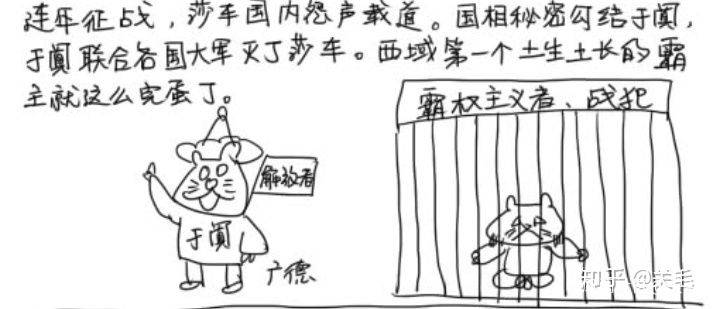 连年征战，莎车国内怨声载道。国相秘密勾结于阗，
于阗联合各国大军灭了莎车。西域第一个土生土长的霸
主就这么完蛋了。
霸权主义者、战犯
解放者
于阗
广德
知乎 @关毛